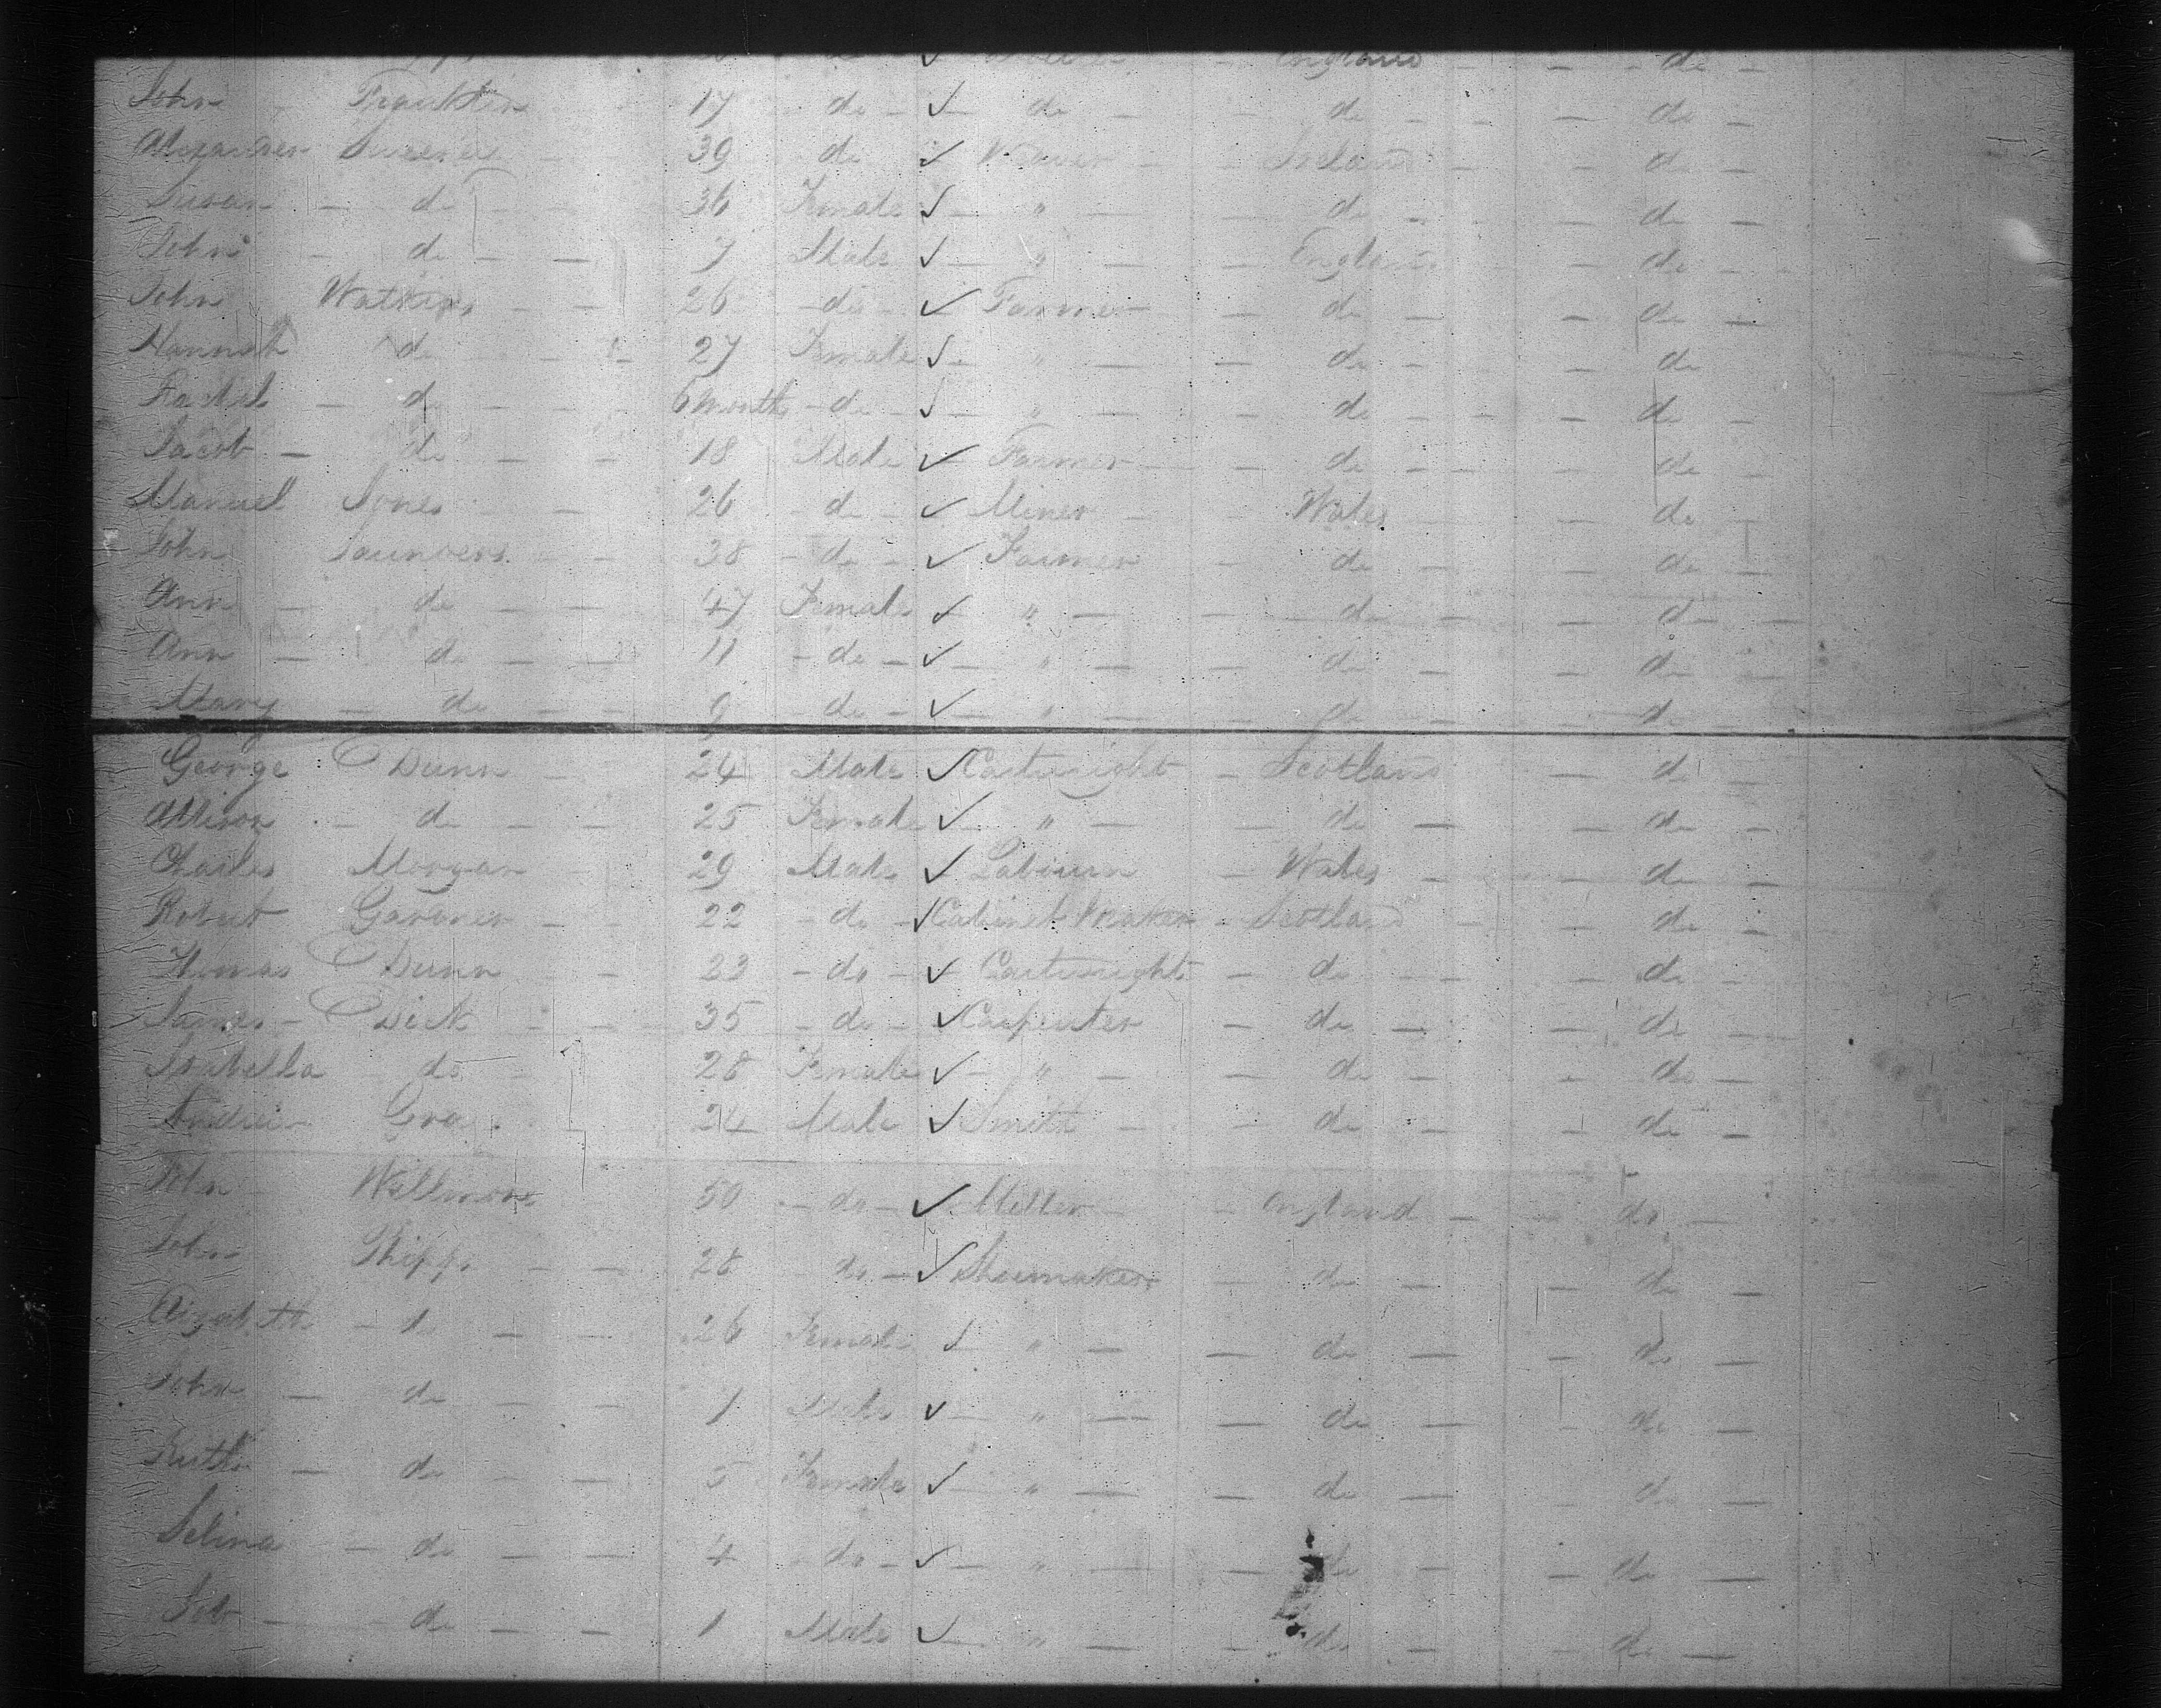 England - - do -
John - Franklin 17 - do - ✓ - do - - do - - - do -
Alexander 39 do ✓ Weaver - - Ireland - - do -
Susan - do - - 36 Female ✓ - " - - do - - do -
John - do - - 7 Male ✓ - " - - England - do -
John Watkins - - 26 - do - ✓ Farmer - do - - do -
Hannah do - - 27 Female ✓ - " - - do - - do
Rachel - do - - 6 Months - do - ✓ - " - do - - do -
Jacob - do - - 18 Male ✓ Farmer - do - - do -
Manuel Jones - - 26 - do - ✓ Miner - Wales - do -
John Saunders - - 38 - do - ✓ Farmer - do - - do -
Ann - do - - 47 Female ✓ " - - do - - do -
Ann - do - - 11 - do - ✓ - " - - do - - do -
Mary - do - - 9 - do - ✓ - " - - do - - do -
George Dunn - 24 Male ✓ Cartwright - Scotland - do -
Allison - do - - 25 Female ✓ - " - - do - - do -
Charles Morgan - 29 Male ✓ - Wales - - do -
Robert Gardner - - 22 - do - ✓ Cabinet Maker - Scotland - do -
Thomas Dunn - - 23 - do - ✓ Cartwright - do - - do -
James - Dick - - 35 - do - ✓ Carpenter - do - - do -
Isabella do - 28 Female ✓ - " - - do - - do -
Andrew Gray 24 Male ✓ Smith - - do - - do -
John Willmore 50 - do - ✓ Miller - - England - - do -
John Phipps - - 28 - do - ✓ Shoemaker - do - - do -
Elizabeth - do - - 26 Female ✓ " - - do - - do -
John - do - - 7 Male ✓ - " - - do - - do -
Ruth - do - - 5 Female ✓ - " - - do - - do -
Selina - do - - 4 - do - ✓ - " - - do - - do -
Job - do - - 1 Male ✓ - " - - do - - do -